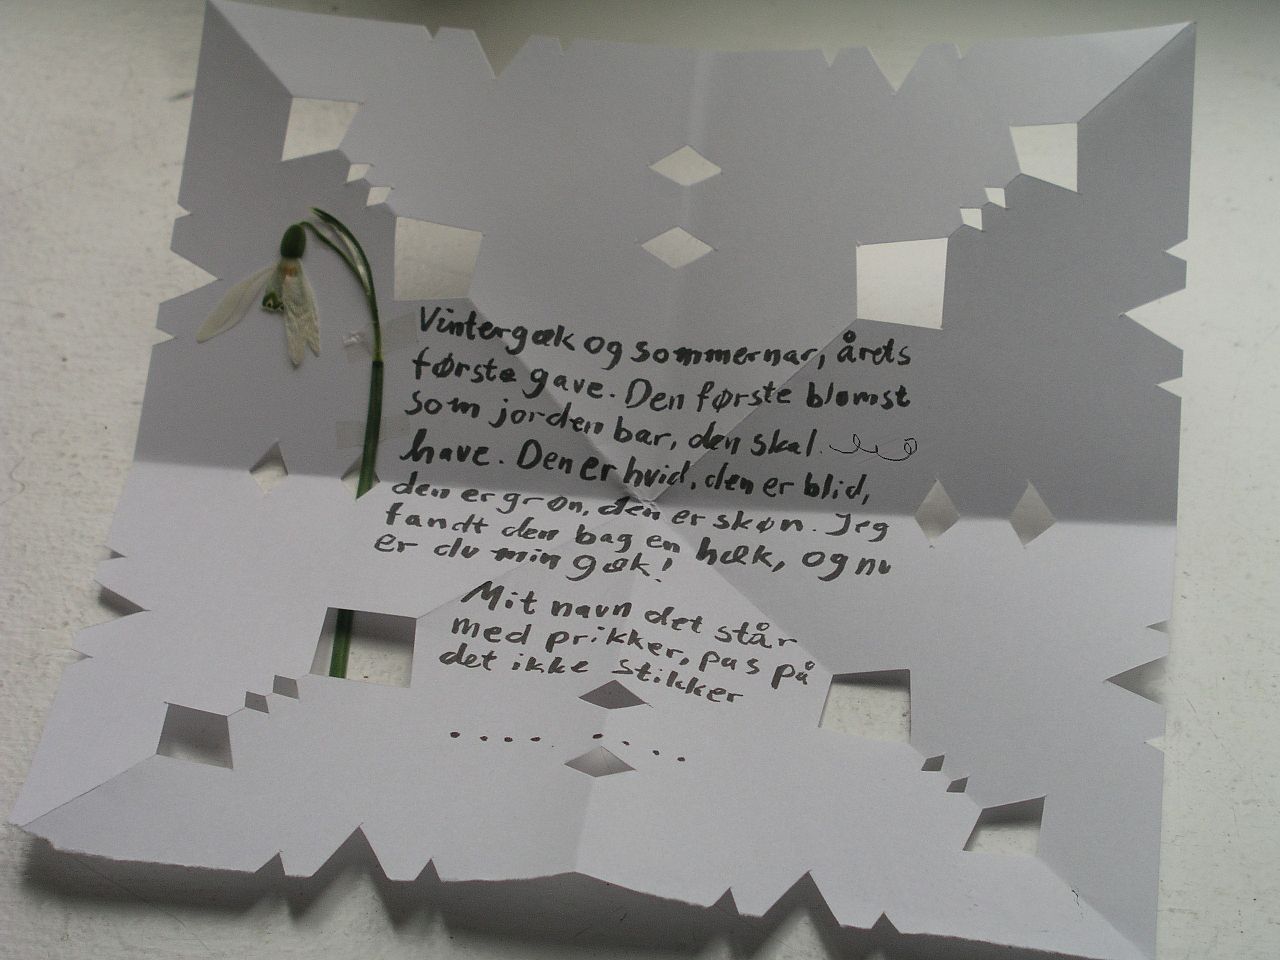 Vintergæk og sommernar, årets
første gave. Den første blomst
som jorden bar, den skal
have. Den er hvid, den er blid,
den er grøn, den er skøn. Jeg
fandt den bag en hæk, og nu
er du min gæk!
Mit navn det står
med prikker, pas på
det ikke stikker
. . . .  . . . .